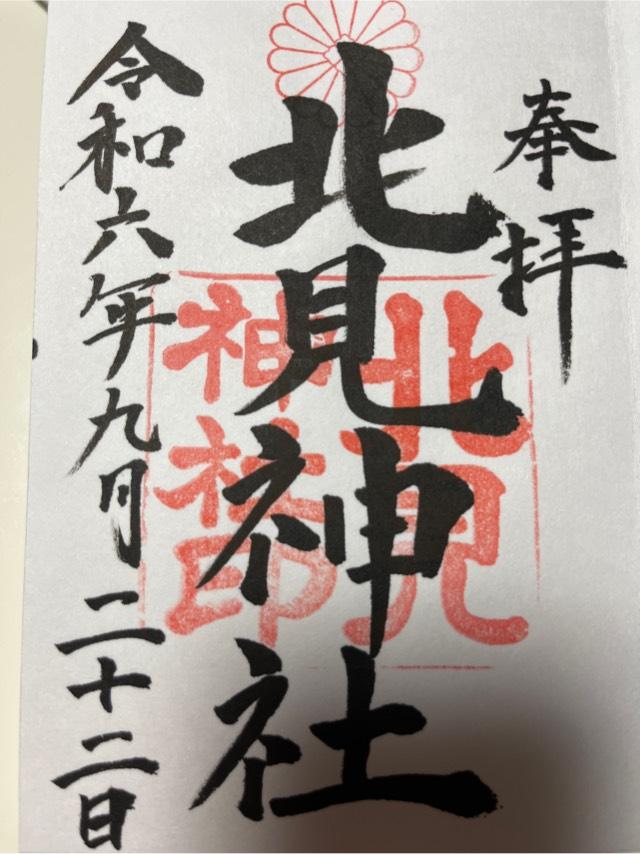 奉拝
北見神社
北見
神社印
令和六年九月二十二日